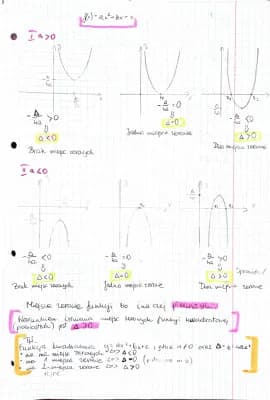 f(x) = ax² + bx + c
I a>0
-Δ/4a > 0
-Δ/4a = 0
-Δ/4a < 0
Δ<0
Δ=0
Δ>0
Brak miejsc zerowych
Jedno miejsce zerowe
Dwa miejsca zerowe
II a<0
-Δ/4a < 0
-Δ/4a = 0
-Δ/4a > 0
Δ<0
Δ=0
Δ>0
Brak miejsc zerowych
Jedno miejsce zerowe
Dwa miejsca zerowe
Miejsca zerowe funkcji to inaczej pierwiastki
Warunkiem istnienia miejsc zerowych funkcji kwadratowej
(pierwiastków) jest Δ ≥ 0
Tw.
Funkcja kwadratowa y = ax² + bx + c, gdzie a ≠ 0 oraz Δ = b² - 4ac
nie ma miejsc zerowych <=> Δ<0
ma 1 miejsce zerowe <=> Δ=0
ma 2 miejsca zerowe <=> Δ>0